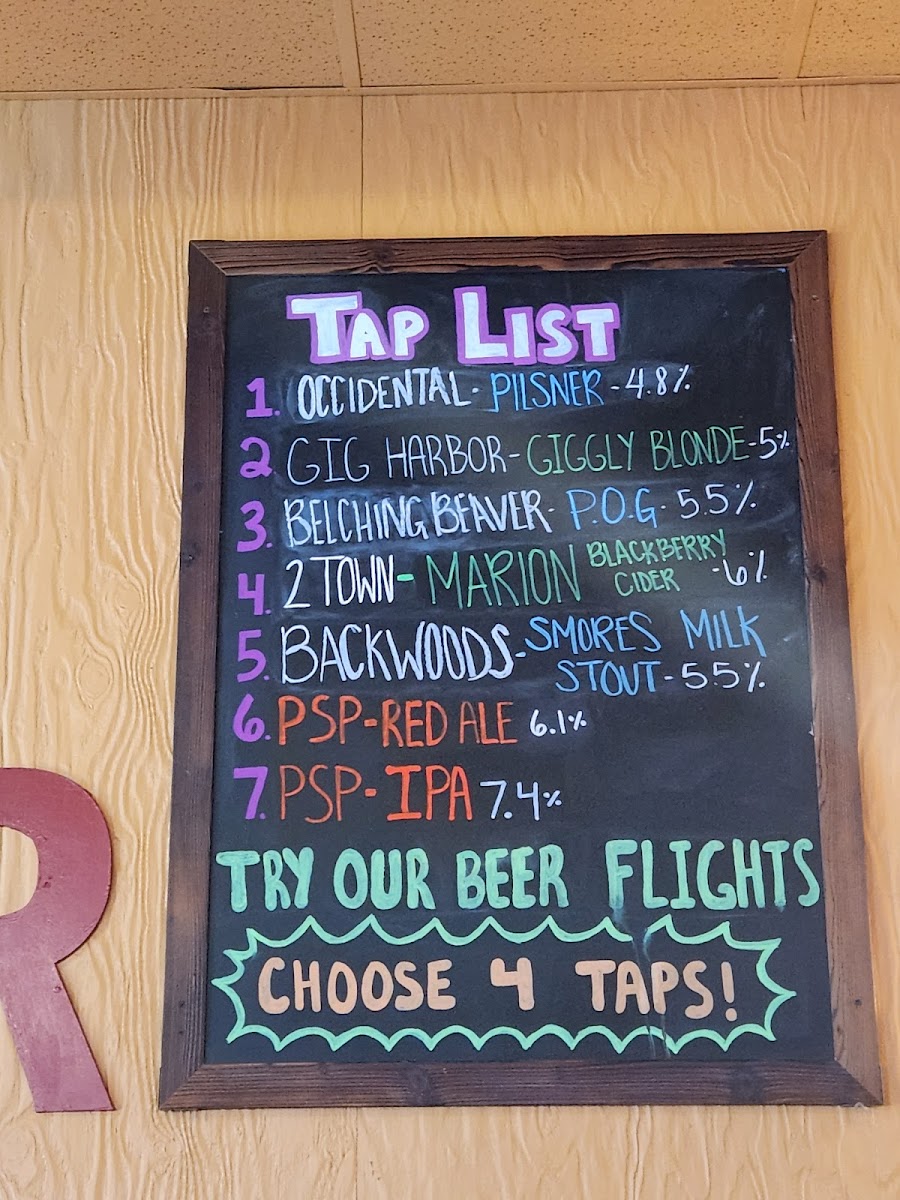 TAP LIST
1. OCCIDENTAL - PILSNER - 4.8%
2. GIG HARBOR - GIGGLY BLONDE - 5%
3. BELCHING BEAVER - P.O.G - 5.5%
4. 2 TOWN - MARION BLACKBERRY CIDER - 6%
5. BACKWOODS - SMORES MILK
STOUT - 5.5%
6. PSP - RED ALE 6.1%
7. PSP - IPA 7.4%
TRY OUR BEER FLIGHTS
CHOOSE 4 TAPS!
R